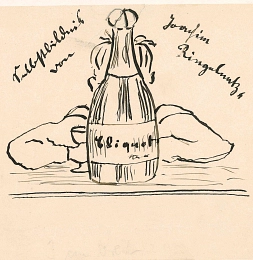 Selbstbildnis
von
Joachim
Ringelnatz
Cliquot